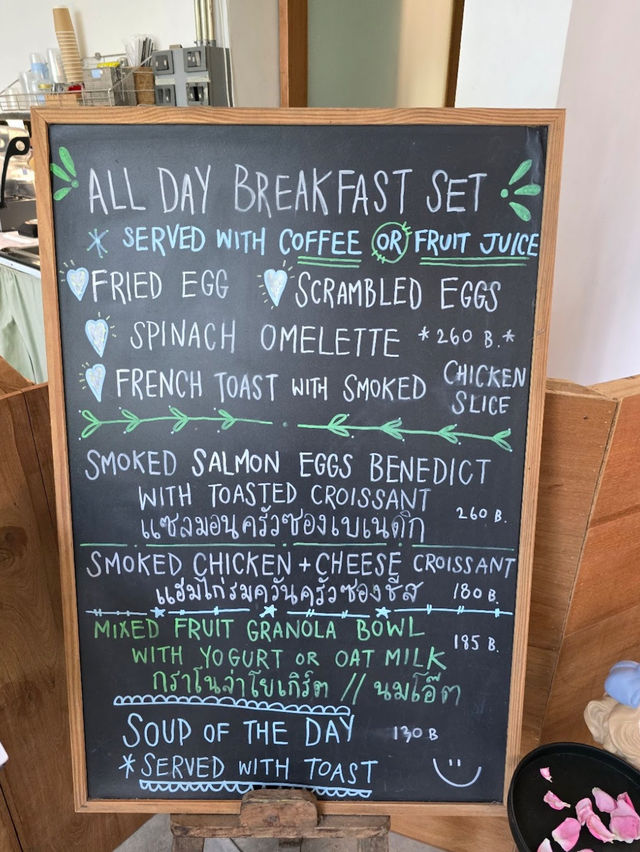 ALL DAY BREAKFAST SET
* SERVED WITH COFFEE OR FRUIT JUICE
FRIED EGG SCRAMBLED EGGS
SPINACH OMELETTE *260 B.*
FRENCH TOAST WITH SMOKED CHICKEN SLICE
SMOKED SALMON EGGS BENEDICT
WITH TOASTED CROISSANT
แซลมอนครัวซองเบเนดิก 260 B.
SMOKED CHICKEN + CHEESE CROISSANT
แฮมไก่รมควันครัวซองชีส 180 B.
MIXED FRUIT GRANOLA BOWL 185 B.
WITH YOGURT OR OAT MILK
กราโนล่าโยเกิร์ต // นมโอ๊ต
SOUP OF THE DAY 130 B
*SERVED WITH TOAST